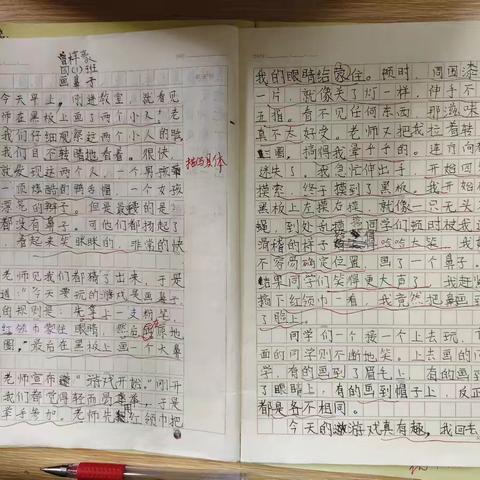 曾梓豪
四(1)班
画鼻子
今天早上,刚进教室,就看见
师在黑板上画了两个小人!老
我们仔细观察这两个小人的脸
我们目不转睛地看着。很快,
就发现这两个人,一个男孩
一顶炫酷的鸭舌帽,一个女孩
漂亮的辫子。但是最
都没有鼻子。可他们都
,看起来笑眯眯的,非常的快
描写具体
老师见我们都猜了出来,于是
道:“今天要玩的游戏是画鼻子
的规则是:先拿上一支粉笔
红领巾蒙住眼睛,然后原地
圈,最后在黑板上画一个大鼻
老师宣布“游戏开始。”刚开
我们都觉得轻而易举,于是
举手参加。老师先红领巾把
我的眼睛给蒙住。顿时,周围漆
一片,就像关了灯一样,伸手不
五指。看不见任何东西,那滋味
真不太好受。老师又把我拉着转
圈,搞得我晕乎乎的。连方向都
迷失了。我急忙伸出手,开始四
摸索,终于摸到了黑板。我开始
黑板上左摸右摸,就像一只无头
蝇,到处乱摸。同学们顿时被我这
滑稽的样子 哈哈大笑。我好
不容易确定位置,画了一个鼻子,
结果同学们笑得更大声了。我赶
摘下红领巾一看,我竟然把鼻画到
了脸上。
同学们一个接一个上去玩,下
面的同学则不断地笑。上去画的同
学,有的画到了眉毛上,有的画到
了眼睛上,有的画到帽子上,反正
都是各不相同。
今天的游戏真有趣,我回去